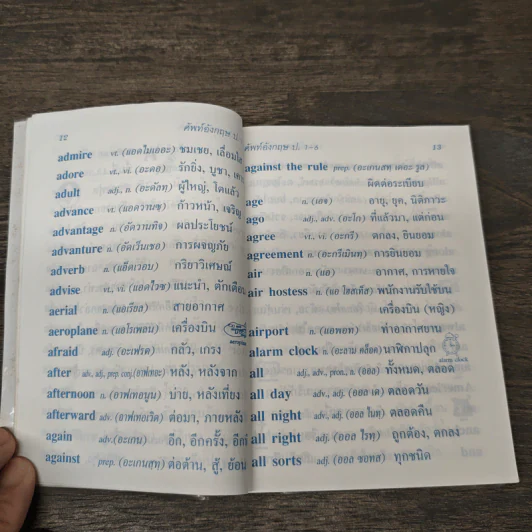 12 ศัพท์อังกฤษ ป.
admire vt. (แอดไมเออะ) ชมเชย, เลื่อมใส
adore vt., vi. (อะดอ) รักยิ่ง, บูชา,
adult adj., n. (อะดัลทฺ) ผู้ใหญ่, โตแล้ว
advance vt. (แอดวานซฺ) ก้าวหน้า, เจริญ
advantage n. (อัดวานทิจ) ผลประโยชน์
advanture n. (อัดเว็นเชอ) การผจญภัย
adverb n. (แอ็ดเวอบ) กริยาวิเศษณ์
advise vt., vi. (แอดไวซฺ) แนะนำ, ตักเตือน
aerial n. (แอเรียล) สายอากาศ
aeroplane n. (แอโรเพลน) เครื่องบิน
aeroplane
afraid adj. (อะเฟรด) กลัว, เกรง
after adv., adj., prep. conj. (อาฟเทอะ) หลัง, หลังจาก
afternoon n. (อาฟเทอนูน) บ่าย, หลังเที่ยง
afterward adv. (อาฟเทอเวิด) ต่อมา, ภายหลัง
again adv. (อะเกน) อีก, อีกครั้ง,
against prep. (อะเกนสฺทฺ) ต่อต้าน, สู้, ย้อน
ศัพท์อังกฤษ ป. 1-3 13
against the rule prep. (อะเกนสฺทฺ เดอะ รูล)
ผิดต่อระเบียบ
age n. (เอจ) อายุ, ยุค, นิติภาวะ
ago adj., adv. (อะโก) ที่แล้วมา, แต่ก่อน
agree vt., vi. (อะกรี) ตกลง, ยินยอม
agreement n. (อะกรีเมินทฺ) การยินยอม
air n. (แอ) อากาศ, การหายใจ
air hostess n. (แอ โฮสเต็ส) พนักงานรับใช้บน
เครื่องบิน (หญิง)
airport n. (แอพอท) ท่าอากาศยาน
alarm clock n. (อะลาม คล็อค) นาฬิกาปลุก
alarm clock
all adj., adv., pron., n. (ออล) ทั้งหมด, ตลอด
all day adv., adj. (ออล เด) ตลอดวัน
all night adv., adj. (ออล ไนทฺ) ตลอดคืน
all right adj. (ออล ไรทฺ) ถูกต้อง, ตกลง
all sorts adj. (ออล ซอทส) ทุกชนิด